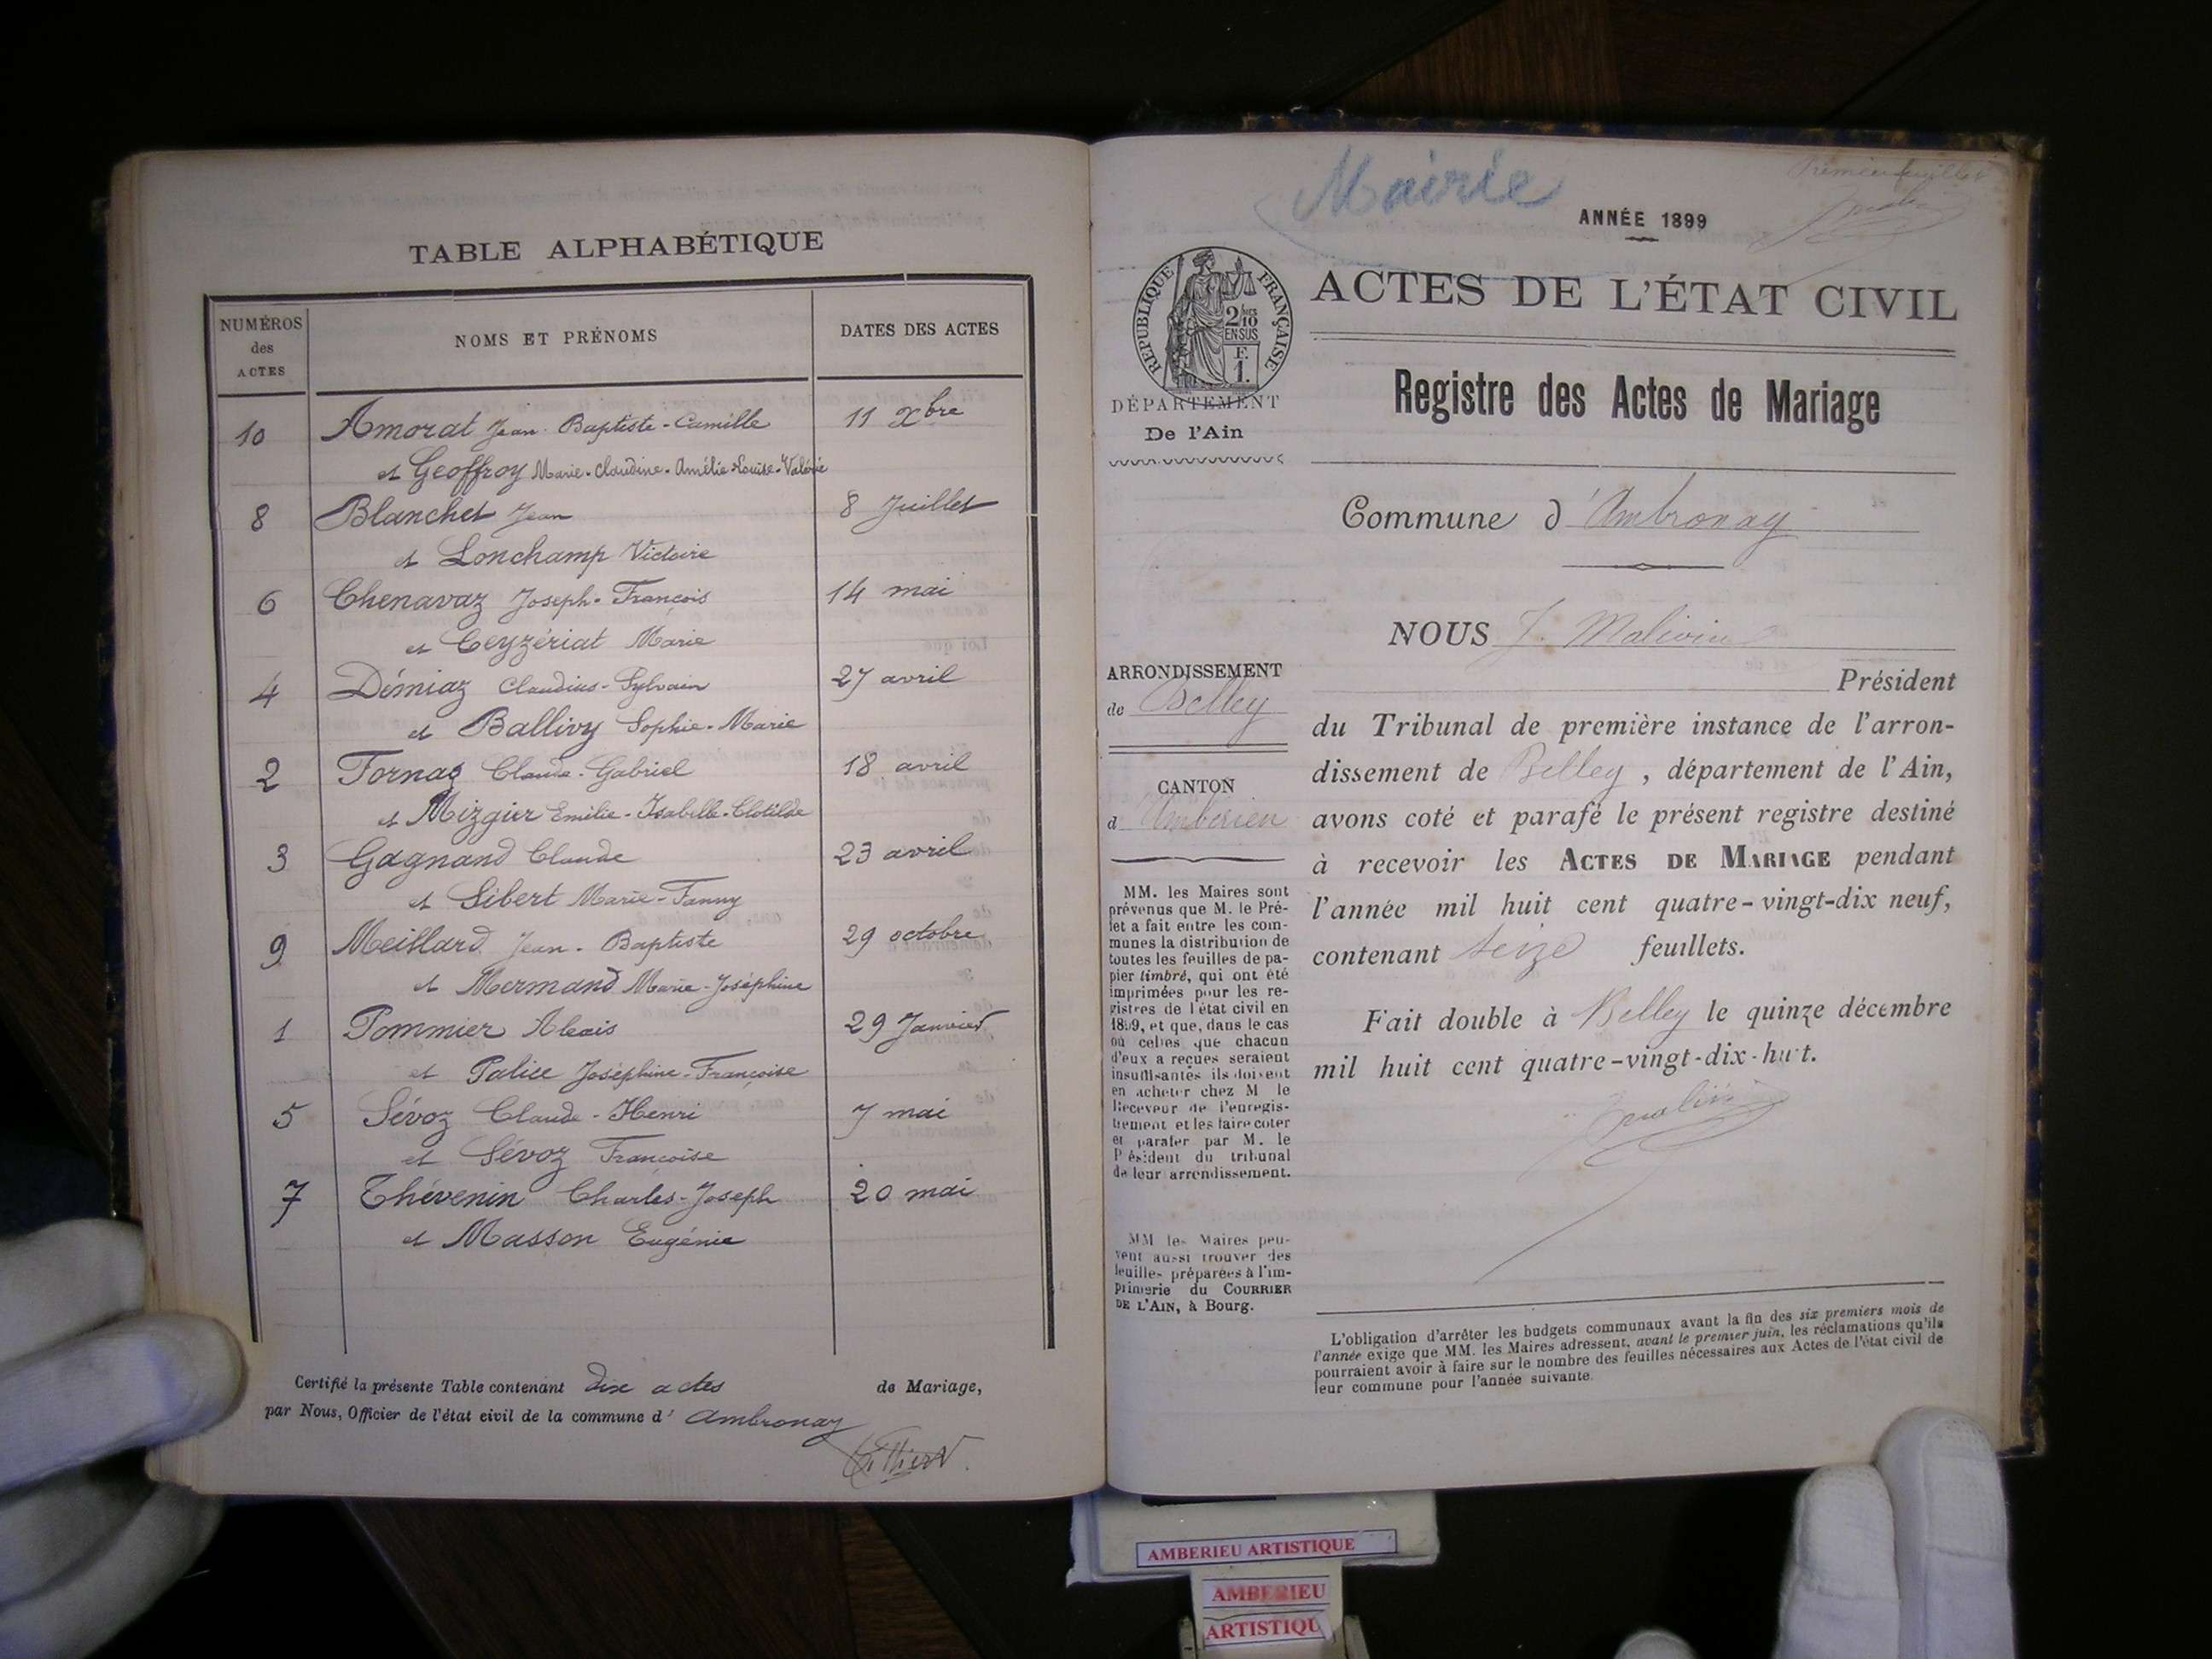 TABLE ALPHABÉTIQUE
NUMÉROS des ACTES
NOMS ET PRÉNOMS
DATES DES ACTES
10 Amorat Jean Baptiste-Camille 11 Xbre
et Geoffroy Marie-Claudine-Amélie-Louise-Valérie
8 Blanchet Jean 8 Juillet
et Lonchamp Victoire
6 Chenavaz Joseph-François 14 mai
et Ceyzériat Marie
4 Démiaz Claudius-Sylvain 27 avril
et Ballivy Sophie-Marie
2 Fornas Claude-Gabriel 18 avril
et Mizgier Emilie-Isabelle-Clotilde
3 Gagnand Claude 23 avril
et Sibert Marie-Fanny
9 Meillard Jean-Baptiste 29 octobre
et Mermand Marie-Joséphine
1 Pommier Alexis 29 Janvier
et Palice Joséphine-Françoise
5 Sévoz Claude-Henri 7 mai
et Sévoz Françoise
7 Thévenin Charles-Joseph 20 mai
et Masson Eugénie
Certifié la présente Table contenant dix actes de Mariage,
par Nous, Officier de l'état civil de la commune d' Ambronay
Mairie
Premier feuillet
ANNÉE 1899
RÉPUBLIQUE FRANÇAISE
2/10
EN SUS
F.
1.
ACTES DE L'ÉTAT CIVIL
DÉPARTEMENT
De l'Ain
Registre des Actes de Mariage
Commune d'Ambronay
ARRONDISSEMENT
de Belley
CANTON
d'Ambérieu
MM. les Maires sont
prévenus que M. le Pré-
fet a fait entre les com-
munes la distribution de
toutes les feuilles de pa-
pier timbré, qui ont été
imprimées pour les re-
gistres de l'état civil en
1899, et que, dans le cas
où celles que chacun
d'eux a reçues seraient
insuffisantes ils doivent
en acheter chez M le
Receveur de l'enregis-
trement et les faire coter
et parafer par M. le
Président du tribunal
de leur arrondissement.
MM les Maires peu-
vent aussi trouver des
feuilles préparées à l'im-
primerie du COURRIER
DE L'AIN, à Bourg.
NOUS J. Malivin
Président
du Tribunal de première instance de l'arron-
dissement de Belley, département de l'Ain,
avons coté et parafé le présent registre destiné
à recevoir les ACTES DE MARIAGE pendant
l'année mil huit cent quatre-vingt-dix neuf,
contenant seize feuillets.
Fait double à Belley le quinze décembre
mil huit cent quatre-vingt-dix-huit.
L'obligation d'arrêter les budgets communaux avant la fin des six premiers mois de
l'année exige que MM. les Maires adressent, avant le premier juin, les réclamations qu'ils
pourraient avoir à faire sur le nombre des feuilles nécessaires aux Actes de l'état civil de
leur commune pour l'année suivante.
AMBERIEU ARTISTIQUE
AMBERIEU
ARTISTIQU